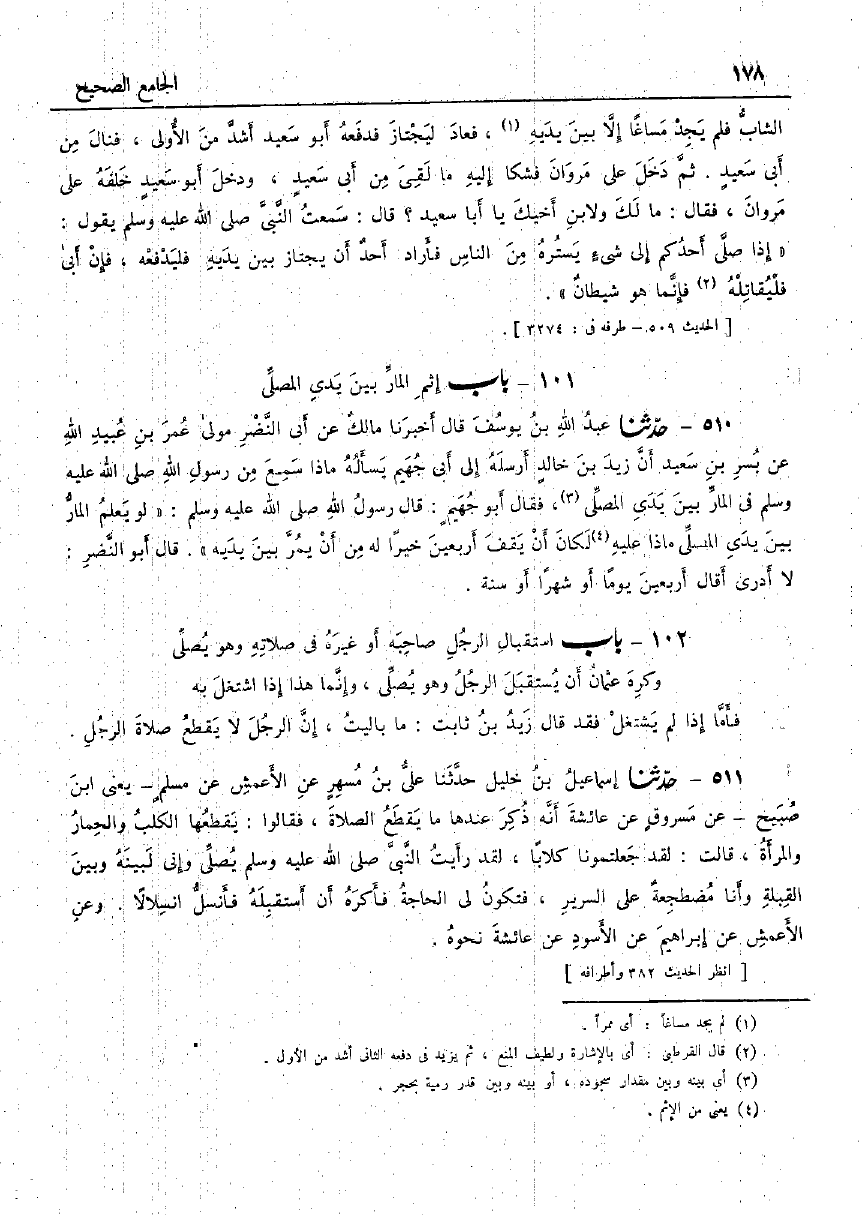 ١٧٨
الجامع الصحيح
الشابُّ فلم يَجِدْ مَساغًا إلَّا بينَ يدَيهِ (١) ، فعادَ ليَجْتازَ فدفَعهُ أبو سَعيد أشدَّ منَ الأُولى ، فنالَ مِن
أبى سَعيدٍ . ثمَّ دَخَلَ على مَروَانَ فشكا إليهِ ما لَقِىَ مِن أبى سَعيدٍ ، ودخلَ أبو سَعيدٍ خَلفَهُ على
مَروانَ ، فقال : ما لَكَ ولابنِ أخيكَ يا أبا سعيد ؟ قال : سَمعتُ النَّبىَّ صلى الله عليه وسلم يقول :
« إذا صلَّى أحدُكم إلى شىءٍ يَستُرهُ مِنَ الناسِ فأرادَ أحدٌ أن يجتاز بين يدَيهِ فليَدْفعْه ، فإنْ أبىٰ
فلْيُقاتِلْهُ (٢) فإنَّما هو شيطانٌ » .
[ الحديث ٥٠٩ – طرفه فى : ٣٢٧٤ ] .
١٠١ – باب إثمِ المارِّ بينَ يَدَىِ المصلِّى
٥١٠ – حدّثنا عبدُ اللهِ بنُ يوسُفَ قال أخبرَنا مالكٌ عن أبى النَّضْرِ مولىٰ عُمرَ بنِ عُبيدِ اللهِ
عن بُسرِ بنِ سَعيد أنَّ زيدَ بنَ خالدٍ أرسلَهُ إلى أبى جُهَيم يَسألُهُ ماذا سَمِعَ مِن رسولِ اللهِ صلى الله عليه
وسلم فى المارِّ بينَ يَدَىِ المصلِّى (٣)، فقال أبو جُهَيمٍ : قال رسولُ اللهِ صلى الله عليه وسلم : « لو يَعلمُ المارُّ
بينَ يدَىِ المصلِّى ماذا عليهِ(٤)لَكانَ أنْ يَقفَ أربعينَ خيرًا له مِن أنْ يمُرَّ بينَ يدَيه » . قال أبو النَّضرِ :
لا أدرى أقال أربعينَ يومًا أو شهرًا أو سنة .
١٠٢ – باب استقبالِ الرجُلِ صاحِبَه أو غيرَهُ فى صلاتِهِ وهو يُصلِّى
وكرِهَ عثمانُ أن يُستقبَلَ الرجُلُ وهو يُصلِّى ، وإنَّما هذا إذا اشتغلَ به
فأمَّا إذا لم يَشتغلْ فقد قال زَيدُ بنُ ثابت : ما باليتُ ، إنَّ الرجُلَ لا يَقطعُ صلاةَ الرجُلِ .
٥١١ – حدّثنا إسماعيلُ بنُ خليل حدَّثَنا علىُّ بنُ مُسهِرٍ عنِ الأَعمشِ عن مسلمٍ – يعنى ابنَ
صُبَيح – عن مَسروقٍ عن عائشةَ أنَّه ذُكِرَ عندها ما يَقطَعُ الصلاةَ ، فقالوا : يَقطعُها الكلبُ والحِمارُ
والمرأةُ ، قالت : لقد جَعلتمونا كلابًا ، لقد رأيتُ النَّبىَّ صلى الله عليه وسلم يُصلِّى وإنى لَبينَهُ وبينَ
القِبلةِ وأنا مُضطجِعةٌ على السريرِ ، فتكونُ لى الحاجةُ فأكرَهُ أن أستقبِلَهُ فأنسلُّ انسِلالًا . وعنِ
الأعمشِ عن إبراهيمَ عن الأسودِ عن عائشةَ نحوهُ .
[ انظر الحديث ٣٨٢ وأطرافه ]
(١) لم يجد مساغاً : أى ممراً .
(٢) قال القرطبى : أى بالإشارة ولطيف المنع ، ثم يزيد فى دفعه الثانى أشد من الأول .
(٣) أي بينه وبين مقدار سجوده ، أو بينه وبين قدر رمية بحجر .
(٤) يعنى من الإثم .